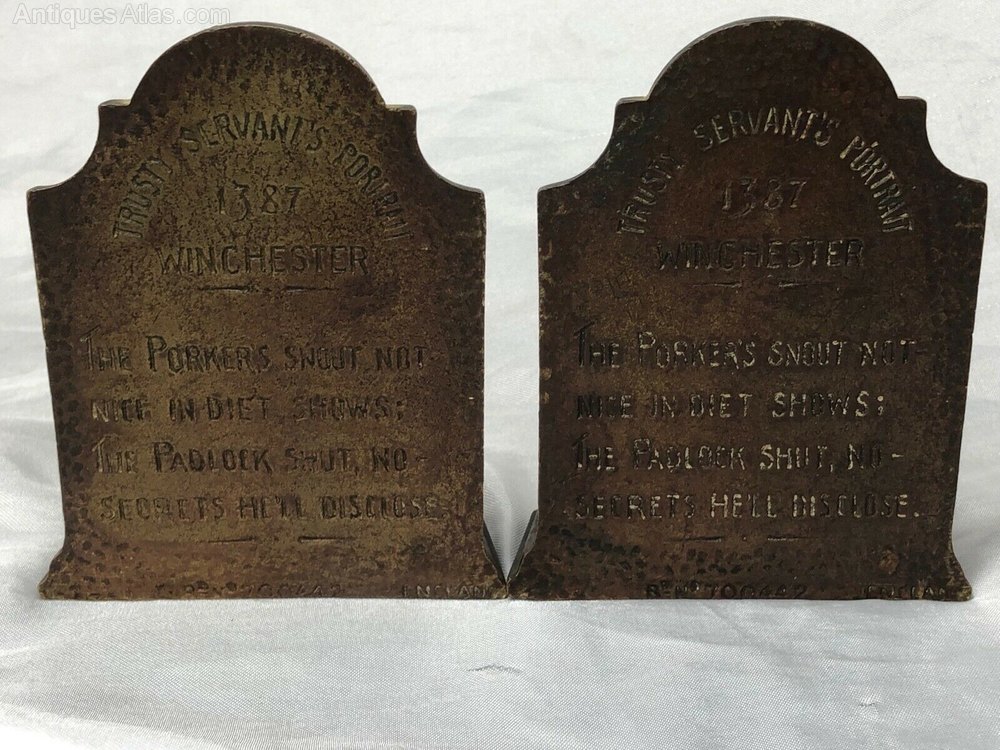 AntiquesAtlas.com
TRUSTY SERVANT'S PORTRAIT
1387
WINCHESTER
THE PORKERS SNOUT NOT-
NICE IN DIET, SHOWS;
THE PADLOCK SHUT, NO-
SECRETS HE'LL DISCLOSE
RD NO 700442 ENGLAN
TRUSTY SERVANT'S PORTRAIT
1387
WINCHESTER
THE PORKER'S SNOUT NOT-
NICE IN DIET SHOWS;
THE PADLOCK SHUT, NO-
SECRETS HE'LL DISCLOSE.
RD NO 700442